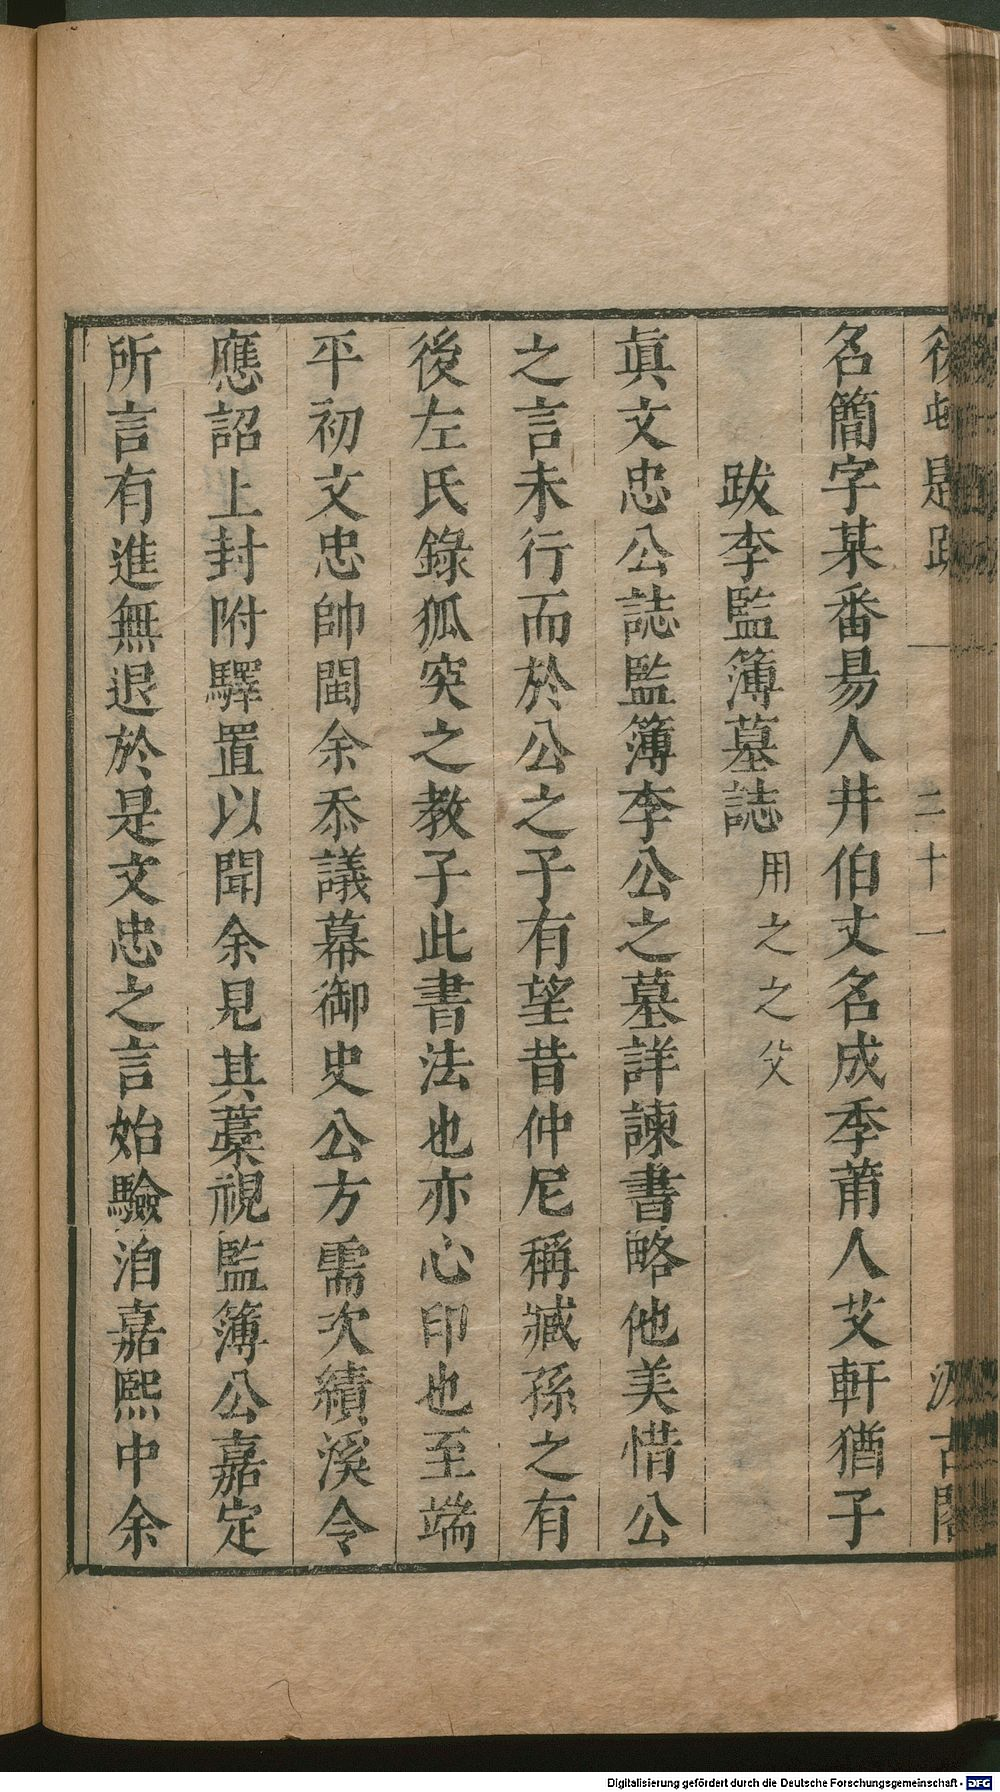 後村題跋 二十一 汲古閣
名簡字某番昜人井伯丈名成季莆人艾軒猶子
跋李監簿墓誌 用之之父
眞文忠公誌監簿李公之墓詳諫書略他美惜公
之言未行而於公之子有望昔仲尼稱臧孫之有
後左氏錄狐突之教子此書法也亦心印也至端
平初文忠帥閩余忝議幕御史公方需次績溪令
應詔上封附驛置以聞余見其藁視監簿公嘉定
所言有進無退於是文忠之言始驗洎嘉熙中余
Digitalisierung gefördert durch die Deutsche Forschungsgemeinschaft - DFG